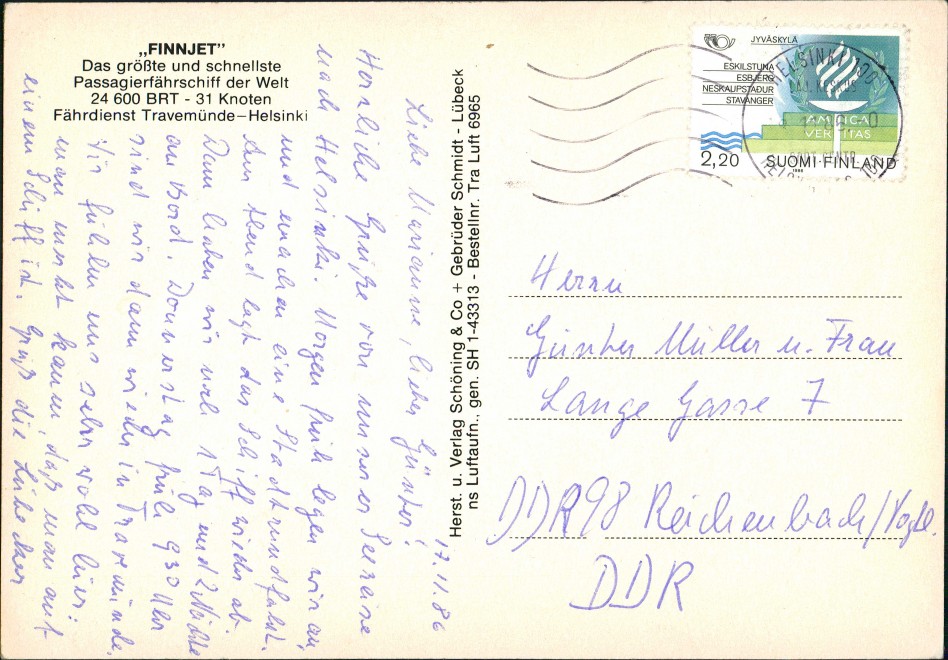 „FINNJET”
Das größte und schnellste
Passagierfährschiff der Welt
24 600 BRT - 31 Knoten
Fährdienst Travemünde–Helsinki
17.11.86
Liebe Marianne, lieber Günther!
Herzliche Grüße von unserer Seereise
nach Helsinki. Morgen früh legen wir an
und machen eine Stadtrundfahrt.
Am Abend legt das Schiff wieder ab.
Dann haben wir noch 1 Tag und 2 Nächte
an Bord. Donnerstag früh 9.30 Uhr
sind wir dann wieder in Travemünde.
Wir fühlen uns sehr wohl hier
man merkt kaum, daß man auf
einem Schiff ist. Grüß die Lübecker
Herst. u. Verlag Schöning & Co + Gebrüder Schmidt - Lübeck
ns Luftaufn., gen. SH 1-43313 - Bestellnr. Tra Luft 6965
JYVÄSKYLÄ
ESKILSTUNA
ESBJERG
NESKAUPSTADUR
STAVANGER
AMICA
VERITAS
2,20
SUOMI·FINLAND
1986
HELSINKI 100
Herrn
Günther Müller u. Frau
Lange Gasse 7
DDR 98 Reichenbach/Vogtl.
DDR